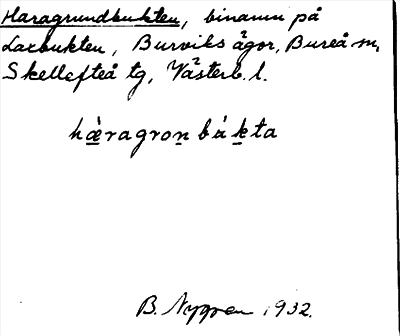 Haragrundbukten, binamn på
Laxbukten, Burviks ägor, Bureå sn,
Skellefteå tg, Västerb. l.
hæ̀ragron̲bák̲ta
B. Nygren 1932.